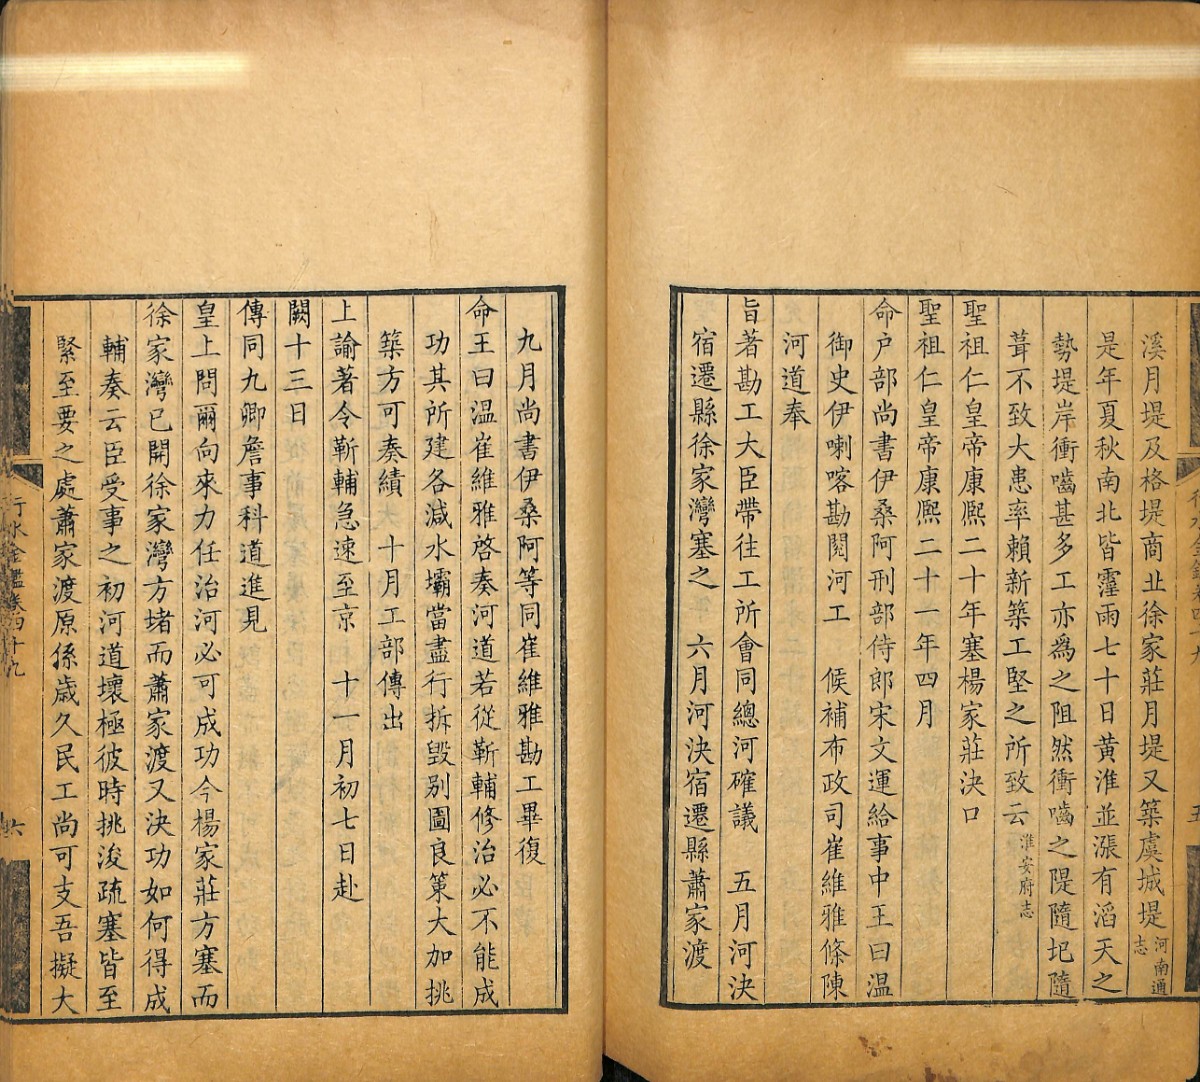 溪月堤及格堤商丘徐家莊月堤又築虞城堤河南通志
是年夏秋南北皆霪雨七十日黃淮並漲有滔天之
勢堤岸衝嚙甚多工亦為之阻然衝嚙之隄隨圮隨
葺不致大患率賴新築工堅之所致云淮安府志
聖祖仁皇帝康熙二十年塞楊家莊決口
聖祖仁皇帝康熙二十一年四月
命户部尚書伊桑阿刑部侍郎宋文運給事中王曰温
御史伊喇喀勘閱河工 候補布政司崔維雅條陳
河道奉
旨著勘工大臣帶往工所會同總河確議 五月河決
宿遷縣徐家灣塞之 六月河決宿遷縣蕭家渡
九月尚書伊桑阿等同崔維雅勘工畢復
命王曰温崔維雅啓奏河道若從靳輔修治必不能成
功其所建各減水壩當盡行拆毀别圖良策大加挑
築方可奏績 十月工部傳出
上諭著令靳輔急速至京 十一月初七日赴
闕十三日
傳同九卿詹事科道進見
皇上問爾向來力任治河必可成功今楊家莊方塞而
徐家灣已開徐家灣方堵而蕭家渡又決功如何得成
輔奏云臣受事之初河道壞極彼時挑浚疏塞皆至
緊至要之處蕭家渡原係歲久民工尚可支吾擬大
行水金鑑卷四十九
六